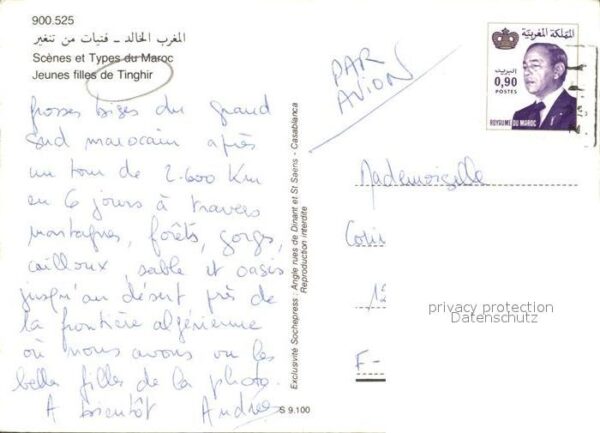 900.525
المغرب الخالد - فتيات من تنغير
Scènes et Types du Maroc
Jeunes filles de Tinghir
grosses bizes du grand
Sud marocain après
un tour de 2.600 Km
en 6 jours à travers
montagnes, forêts, gorges,
cailloux, sable et oasis
jusqu'au désert près de
la frontière algérienne
où nous avons vu les
bella filles de la photo.
A bientôt Andrée
Exclusivité Sochepress - Angle rues de Dinant et St Saens - Casablanca
Reproduction interdite
S 9.100
PAR
AVION
المملكة المغربية
البريد
0,90
POSTES
ROYAUME DU MAROC
Mademoiselle
12
F-
privacy protection
Datenschutz